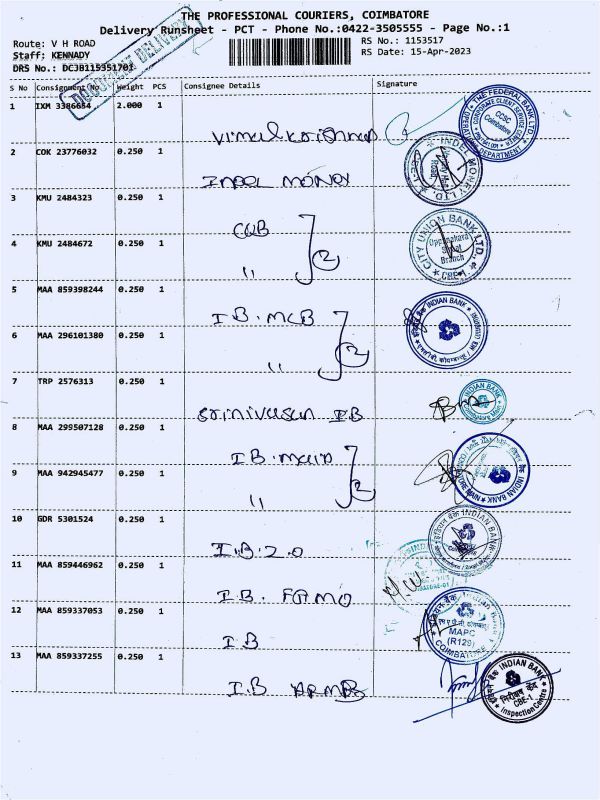 THE PROFESSIONAL COURIERS, COIMBATORE
Delivery Runsheet - PCT - Phone No.:0422-3505555 - Page No.:1
Route: V H ROAD
RS No.: 1153517
Staff: KENNADY
RS Date: 15-Apr-2023
DRS No.: DCJB115351701
DOCUMENT DELIVERY
S No Consignment No Weight PCS Consignee Details Signature
1 IXM 3386654 2.000 1
THE FEDERAL BANK LTD. CCSC Coimbatore DEPARTMENT
2 COK 23776032 0.250 1 INDEL MONEY
INDEL MONEY LTD.
3 KMU 2484323 0.250 1 CUB
4 KMU 2484672 0.250 1 "
CITY UNION BANK LTD., Branch CBE-1
5 MAA 859398244 0.250 1 I.B. MCB
INDIAN BANK
6 MAA 296101380 0.250 1 "
7 TRP 2576313 0.250 1 Srinivasan IB
INDIAN BANK
8 MAA 299507128 0.250 1 I.B. main
9 MAA 942945477 0.250 1 "
INDIAN BANK
10 GDR 5301524 0.250 1 I.B. Z.O
INDIAN BANK
11 MAA 859446962 0.250 1 I.B. FGMO
12 MAA 859337053 0.250 1 I.B
MAPC
(R129)
COIMBATORE
13 MAA 859337255 0.250 1 I.B
INDIAN BANK
निरीक्षण केंद्र
CBE-1
Inspection Centre